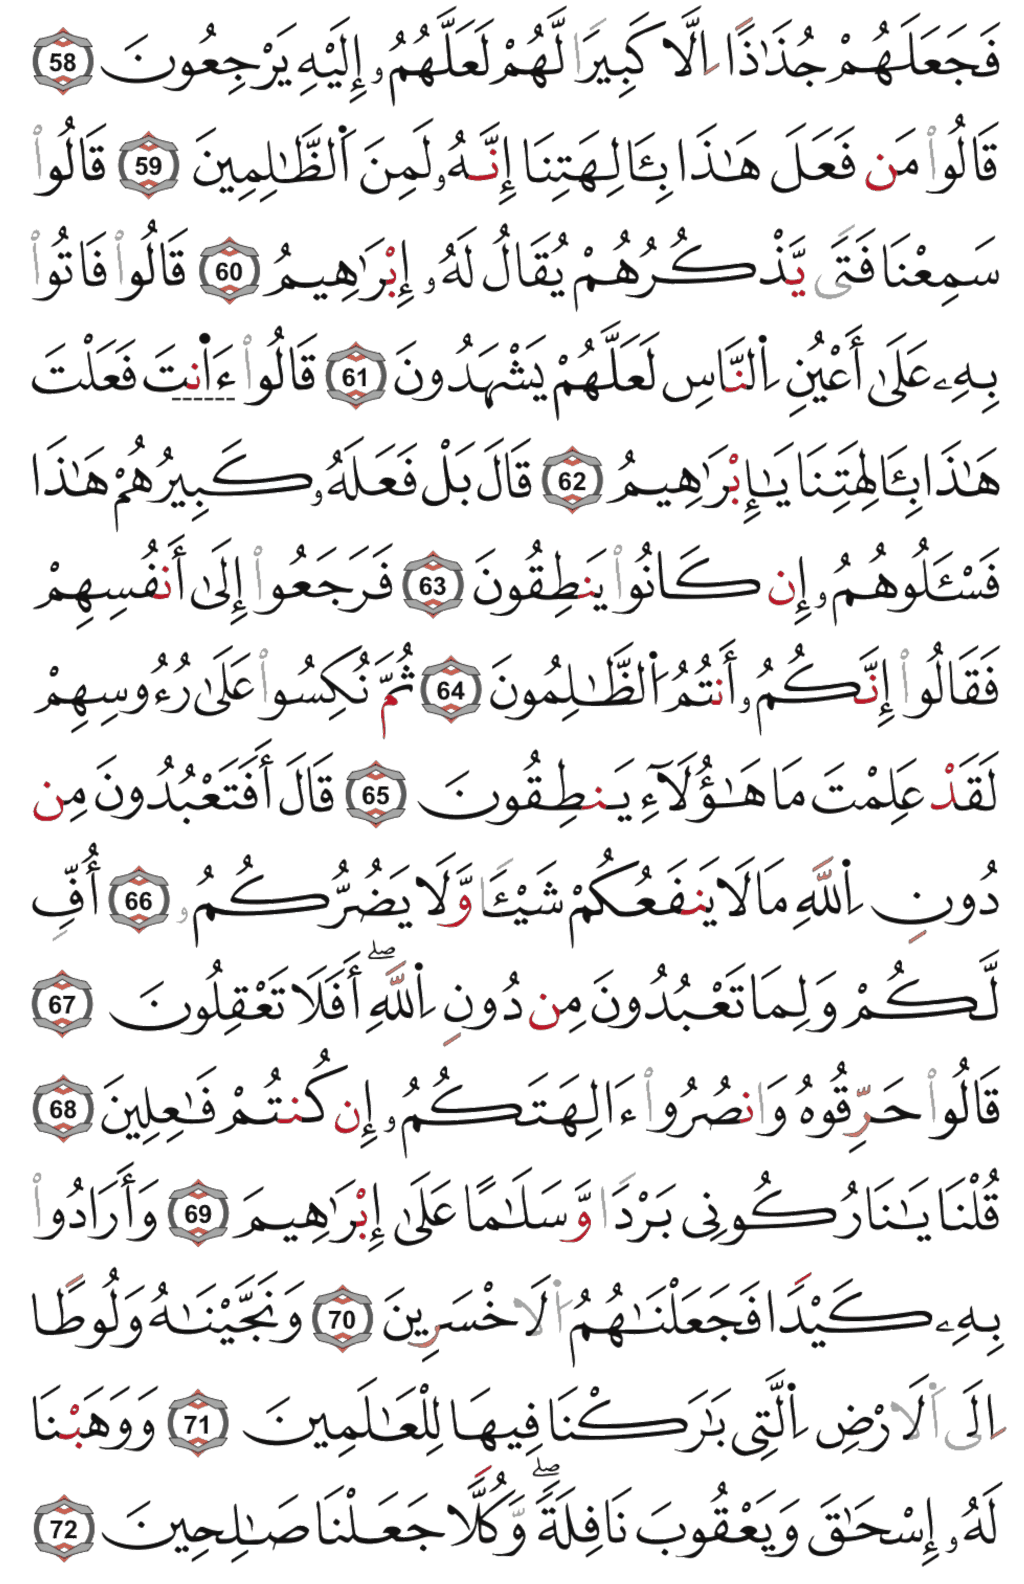 فَجَعَلَهُمْ جُذَٰذًا اِلَّا كَبِيرًا لَّهُمْ لَعَلَّهُمُۥ إِلَيْهِ يَرْجِعُونَ 58
قَالُوا۟ مَن فَعَلَ هَٰذَا بِـَٔالِهَتِنَا إِنَّهُۥ لَمِنَ اَ۬لظَّٰلِمِينَ 59 قَالُوا۟
سَمِعْنَا فَتًى يَذْكُرُهُمْ يُقَالُ لَهُۥ إِبْرَٰهِيمُ 60 قَالُوا۟ فَاتُوا۟
بِهِۦ عَلَىٰ أَعْيُنِ اِ۬لنَّاسِ لَعَلَّهُمْ يَشْهَدُونَ 61 قَالُوا۟ ءَا۬نتَ فَعَلْتَ
هَٰذَا بِـَٔالِهَتِنَا يَٰإِبْرَٰهِيمُ 62 قَالَ بَلْ فَعَلَهُۥ كَبِيرُهُمْ هَٰذَا
فَسْـَٔلُوهُمُۥ إِن كَانُوا۟ يَنطِقُونَ 63 فَرَجَعُوا۟ إِلَىٰ أَنفُسِهِمْ
فَقَالُوا۟ إِنَّكُمُۥ أَنتُمُ اُ۬لظَّٰلِمُونَ 64 ثُمَّ نُكِسُوا۟ عَلَىٰ رُءُوسِهِمْ
لَقَدْ عَلِمْتَ مَا هَٰؤُلَآءِ يَنطِقُونَ 65 قَالَ أَفَتَعْبُدُونَ مِن
دُونِ اِ۬للَّهِ مَا لَا يَنفَعُكُمْ شَيْـًٔا وَّلَا يَضُرُّكُمُۥ 66 أُفٍّ
لَّكُمْ وَلِمَا تَعْبُدُونَ مِن دُونِ اِ۬للَّهِۖ أَفَلَا تَعْقِلُونَ 67
قَالُوا۟ حَرِّقُوهُ وَانصُرُوا۟ ءَالِهَتَكُمُۥ إِن كُنتُمْ فَٰعِلِينَ 68
قُلْنَا يَٰنَارُ كُونِى بَرْدًا وَّسَلَٰمًا عَلَىٰ إِبْرَٰهِيمَ 69 وَأَرَادُوا۟
بِهِۦ كَيْدًا فَجَعَلْنَٰهُمُ اُ۬لَاخْسَرِينَ 70 وَنَجَّيْنَٰهُ وَلُوطًا
اِلَى اَ۬لَارْضِ اِ۬لَّتِى بَٰرَكْنَا فِيهَا لِلْعَٰلَمِينَ 71 وَوَهَبْنَا
لَهُۥ إِسْحَٰقَ وَيَعْقُوبَ نَافِلَةًۖ وَّكُلًّا جَعَلْنَا صَٰلِحِينَ 72